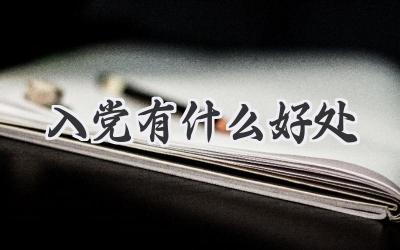 入党有什么好处